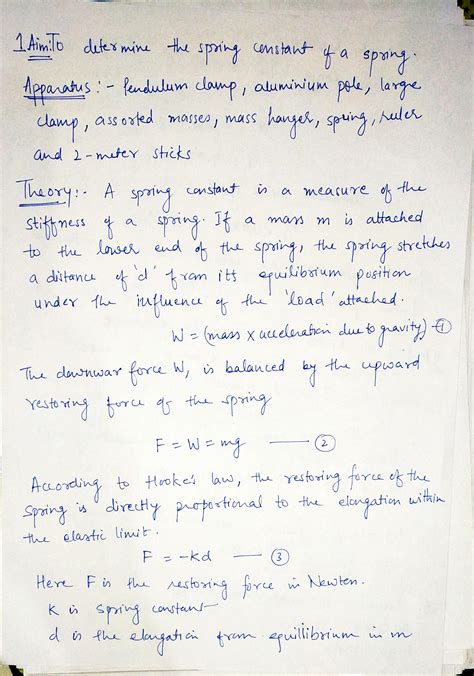 1. Aim: To determine the spring constant of a spring.
Apparatus :- Pendulum clamp, aluminium pole, large
clamp, assorted masses, mass hanger, spring, ruler
and 2-meter sticks
Theory:- A spring constant is a measure of the
stiffness of a spring. If a mass m is attached
to the lower end of the spring, the spring stretches
a distance of 'd' from its equilibrium position
under the influence of the 'load' attached.
W = (mass x acceleration due to gravity) - ①
The downwar force W, is balanced by the upward
restoring force of the spring
F = W = mg — ②
According to Hooke's law, the restoring force of the
spring is directly proportional to the elongation within
the elastic limit.
F = -kd — ③
Here F is the restoring force in Newton.
K is spring constant
d is the elongation from equillibrium in m